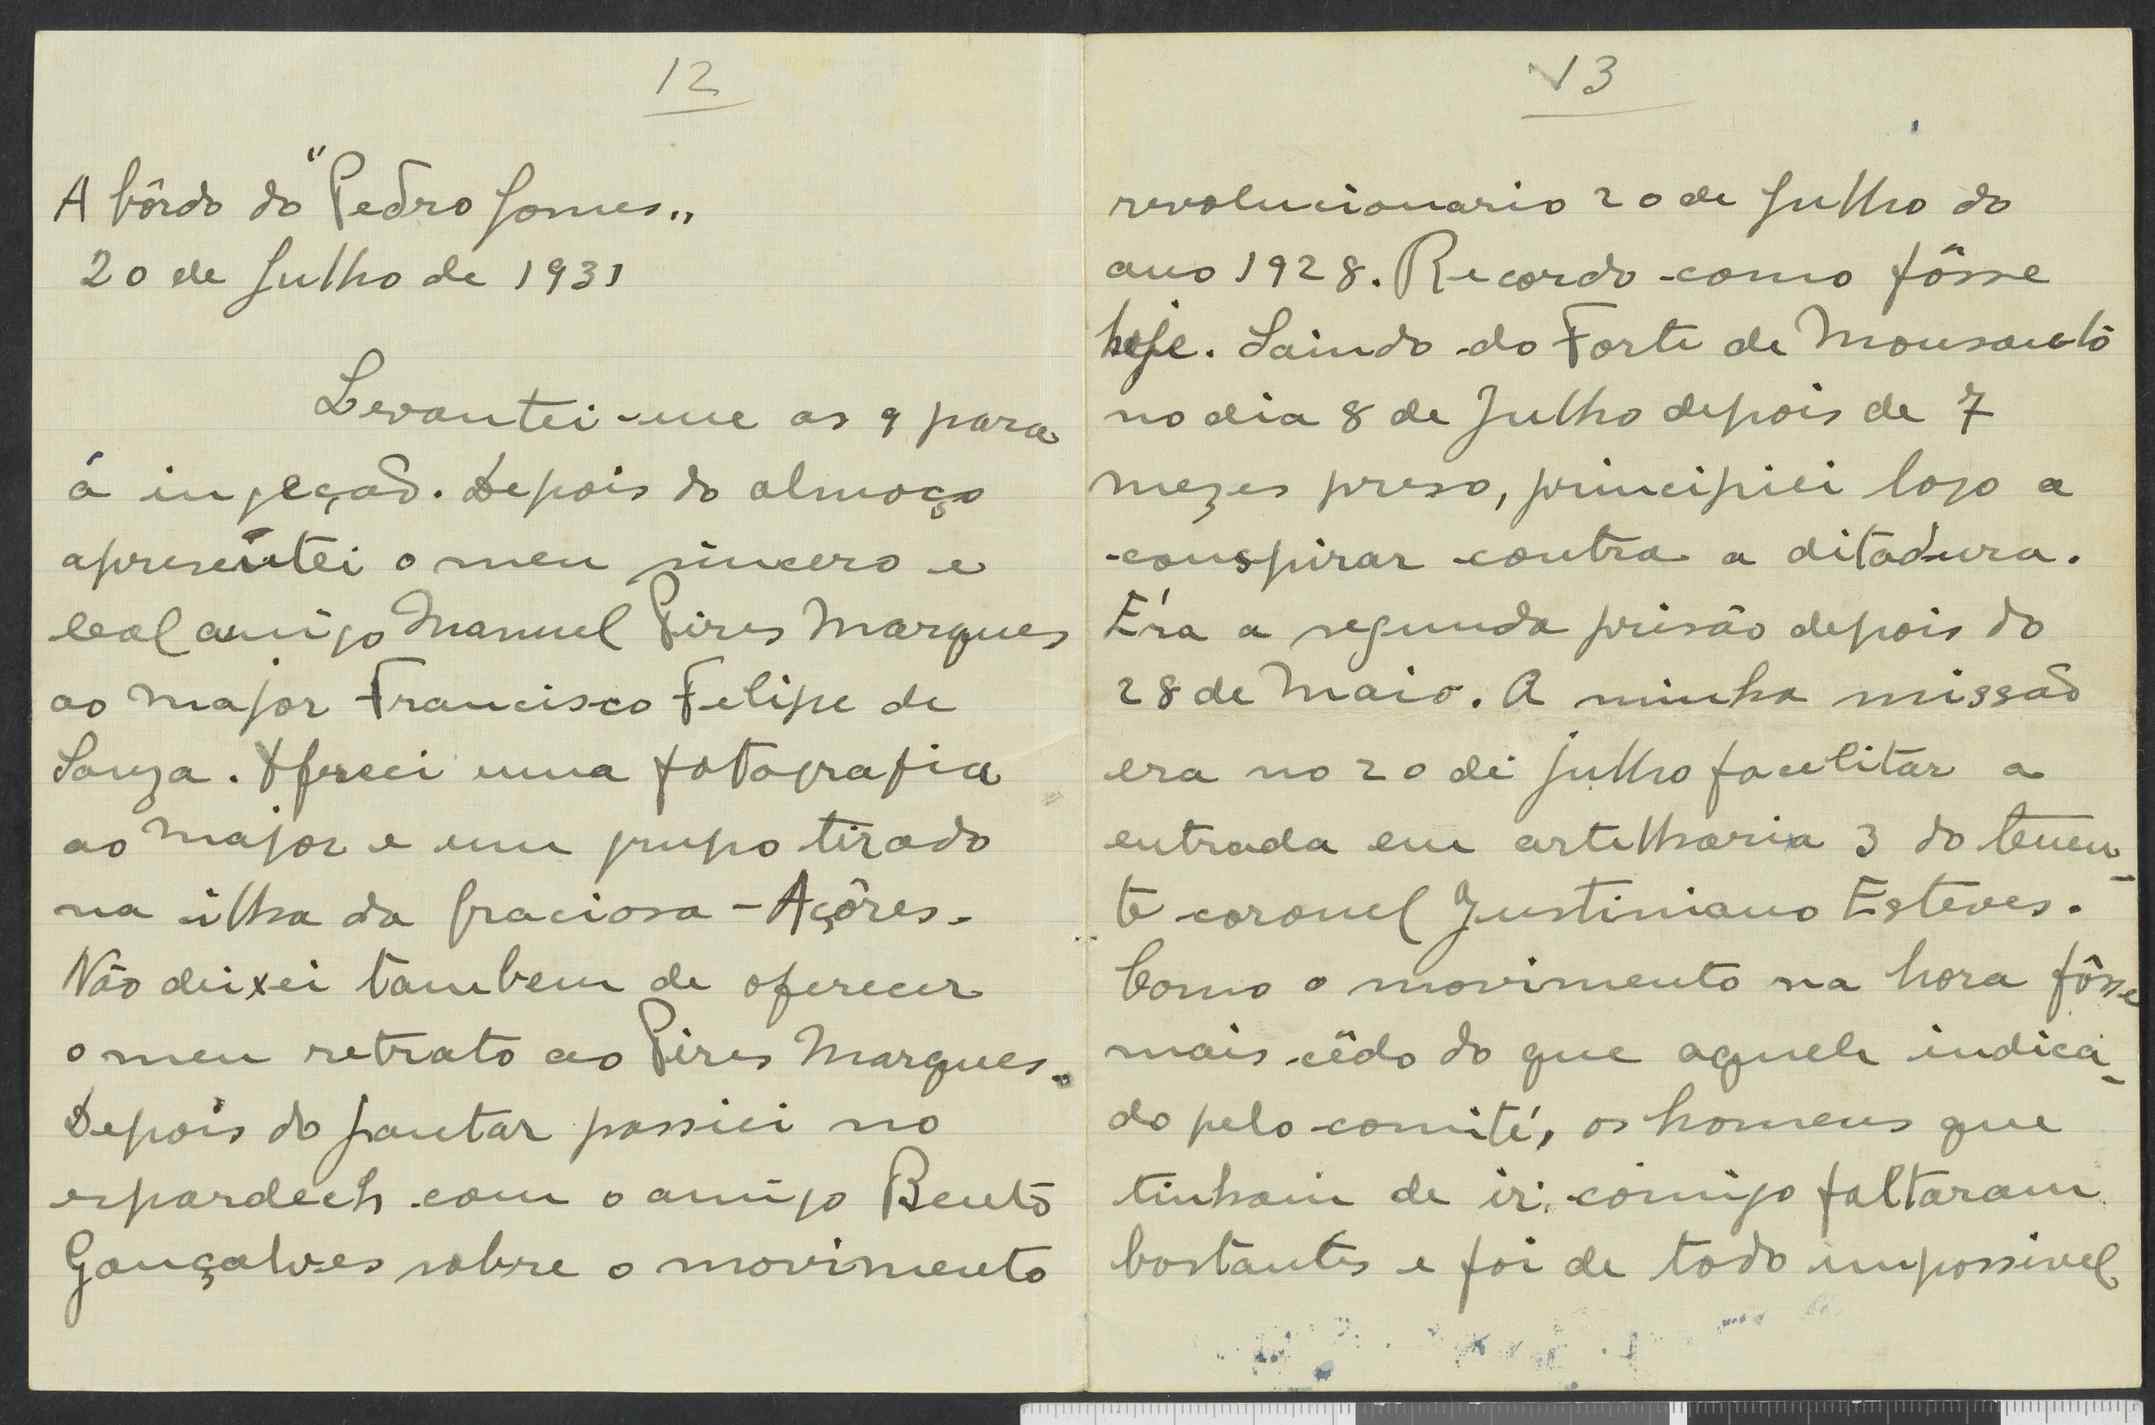 12
A bôrdo do "Pedro Gomes„
20 de Julho de 1931
Levantei-me as 9 para
á injeção. Depois do almoço
apresentei o meu sincero e
leal amigo Manuel Pires Marques
ao major Francisco Felipe de
Souza. Ofereci uma fotografia
ao major e um grupo tirado
na ilha da Graciosa - Açôres.
Não deixei tambem de oferecer
o meu retrato ao Pires Marques.
Depois do jantar passiei no
espardech com o amigo Bento
Gonçalves sobre o movimento
13
revolucionario 20 de Julho do
ano 1928. Recordo como fôsse
hoje. Saindo do Forte de Monsanto
no dia 8 de Julho depois de 7
mezes preso, principiei logo a
conspirar contra a ditadura.
Éra a segunda prisão depois do
28 de Maio. A minha missão
era no 20 de julho facilitar a
entrada em artilharia 3 do tenen-
te coronel Justiniano Esteves.
Como o movimento na hora fôsse
mais cêdo do que aquele indica-
do pelo comité, os homens que
tinham de ir comigo faltaram
bastantes e foi de todo impossivel